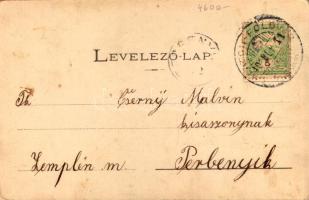 4600-
LEVELEZŐ-LAP.
Th. Cserny Malvin
kisasszonynak
Zemplén m Perbenyik